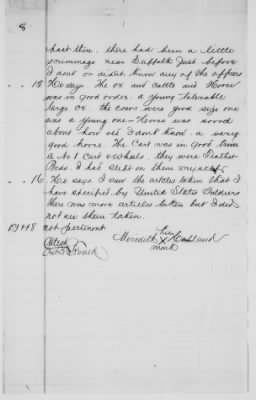 8
past there. there had been a little
scrummage near Suffolk Just before
I dont or didnt Know any of the officers
" " 15 He days The ox and cattle and Horse
was in good order. a young tolerable
large ox the cows were good size one
was a young one – Horse was sorrel
about how old I dont know. a very
good horse. The cart was in good trim
a No 1 Cart & wheels. they were Feather
Beds. I had slept on them myself
" " 16 He says. I saw the articles taken that I
have specified by United States Soldiers
there was more articles taken but I did
not see them taken.
not pertinent
his
Meredith X
mark
Attest